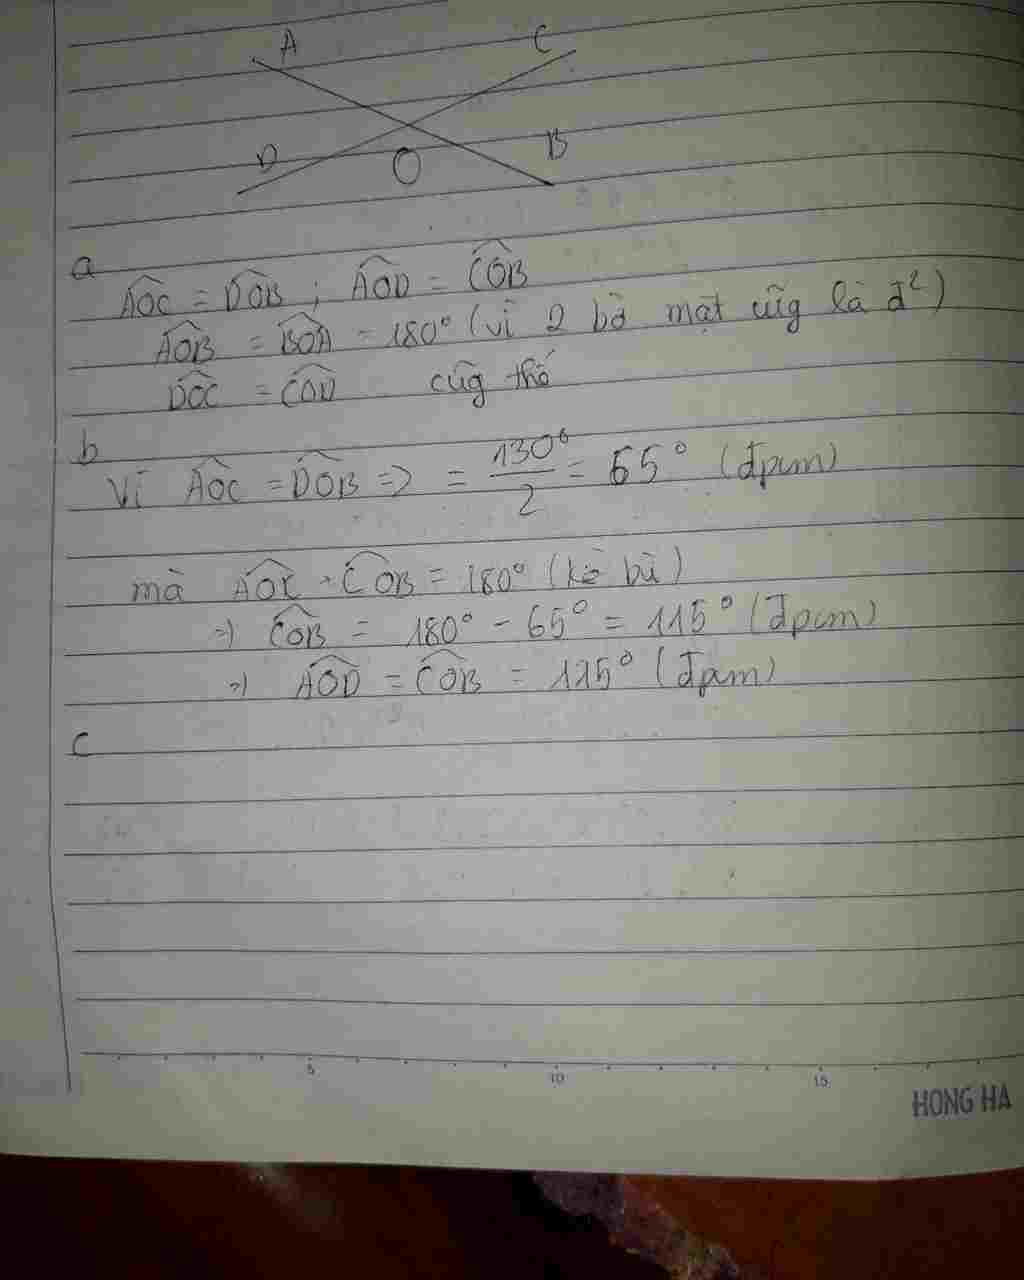 A
C
D
O
B
a
AOC = DOB ; AOD = COB
AOB = BOA = 180° (vì 2 bờ mặt cũg là đ²)
DOC = COD cũg thế
b
Vì AOC = DOB => = 130°/2 = 65° (đpcm)
mà AOC + COB = 180° (kề bù)
=> COB = 180° - 65° = 115° (đpcm)
=> AOD = COB = 115° (đpcm)
c
5 10 15
HONG HA